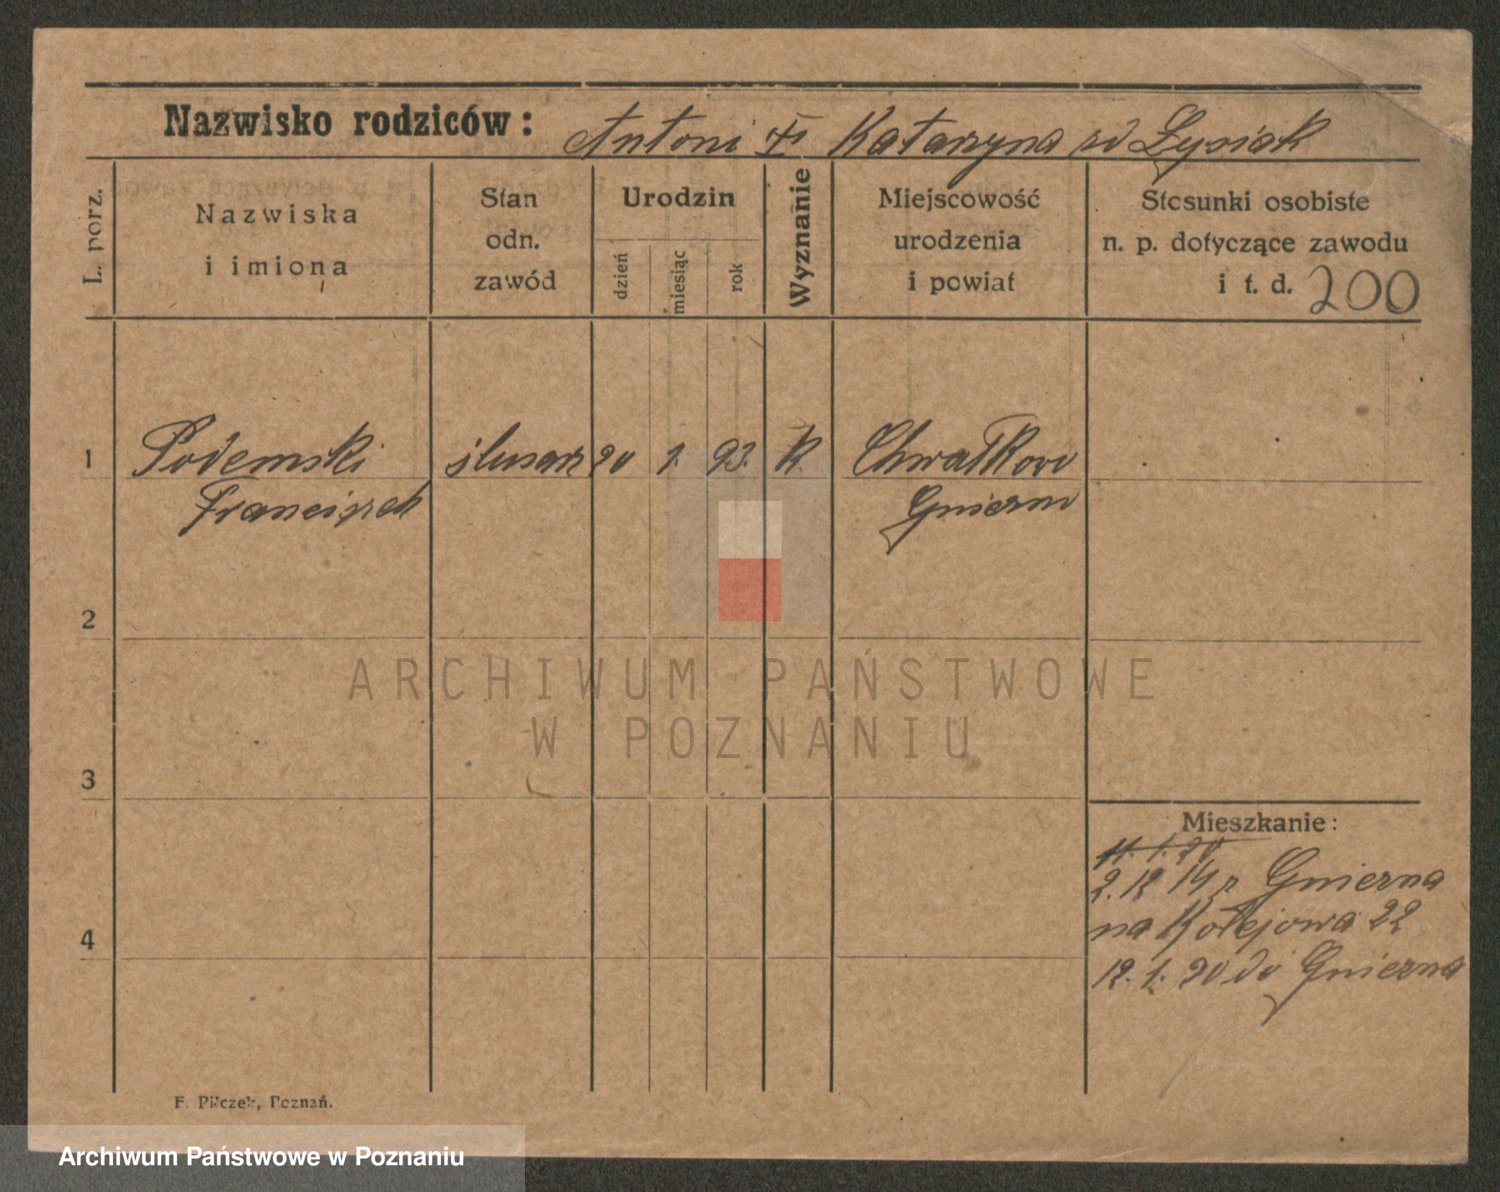 Nazwisko rodziców: Antoni i Katarzyna zd Łysiak
L. porz.
Nazwiska
i imiona
Stan
odn.
zawód
Urodzin
dzień
miesiąc
rok
Wyznanie
Miejscowość
urodzenia
i powiat
Stosunki osobiste
n. p. dotyczące zawodu
i t. d. 200
1 Podemski ślusarz 20 1. 93. k. Chwałkowo
Franciszek Gniezno
2
3
4
Mieszkanie:
11. 1. 20
2. 12 19 z Gniezna
na Kolejowa 22
12. 1. 20 do Gniezna
F. Pilczek, Poznań.
ARCHIWUM PAŃSTWOWE
W POZNANIU
Archiwum Państwowe w Poznaniu